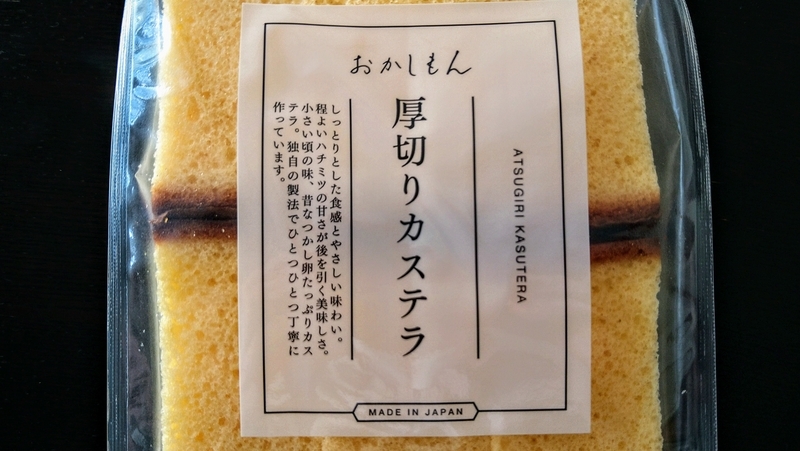 おかしもん
ATSUGIRI KASUTERA
厚切りカステラ
しっとりとした食感とやさしい味わい。
程よいハチミツの甘さが後を引く美味しさ。
小さい頃の味、昔なつかし卵たっぷりカス
テラ。独自の製法でひとつひとつ丁寧に
作っています。
MADE IN JAPAN